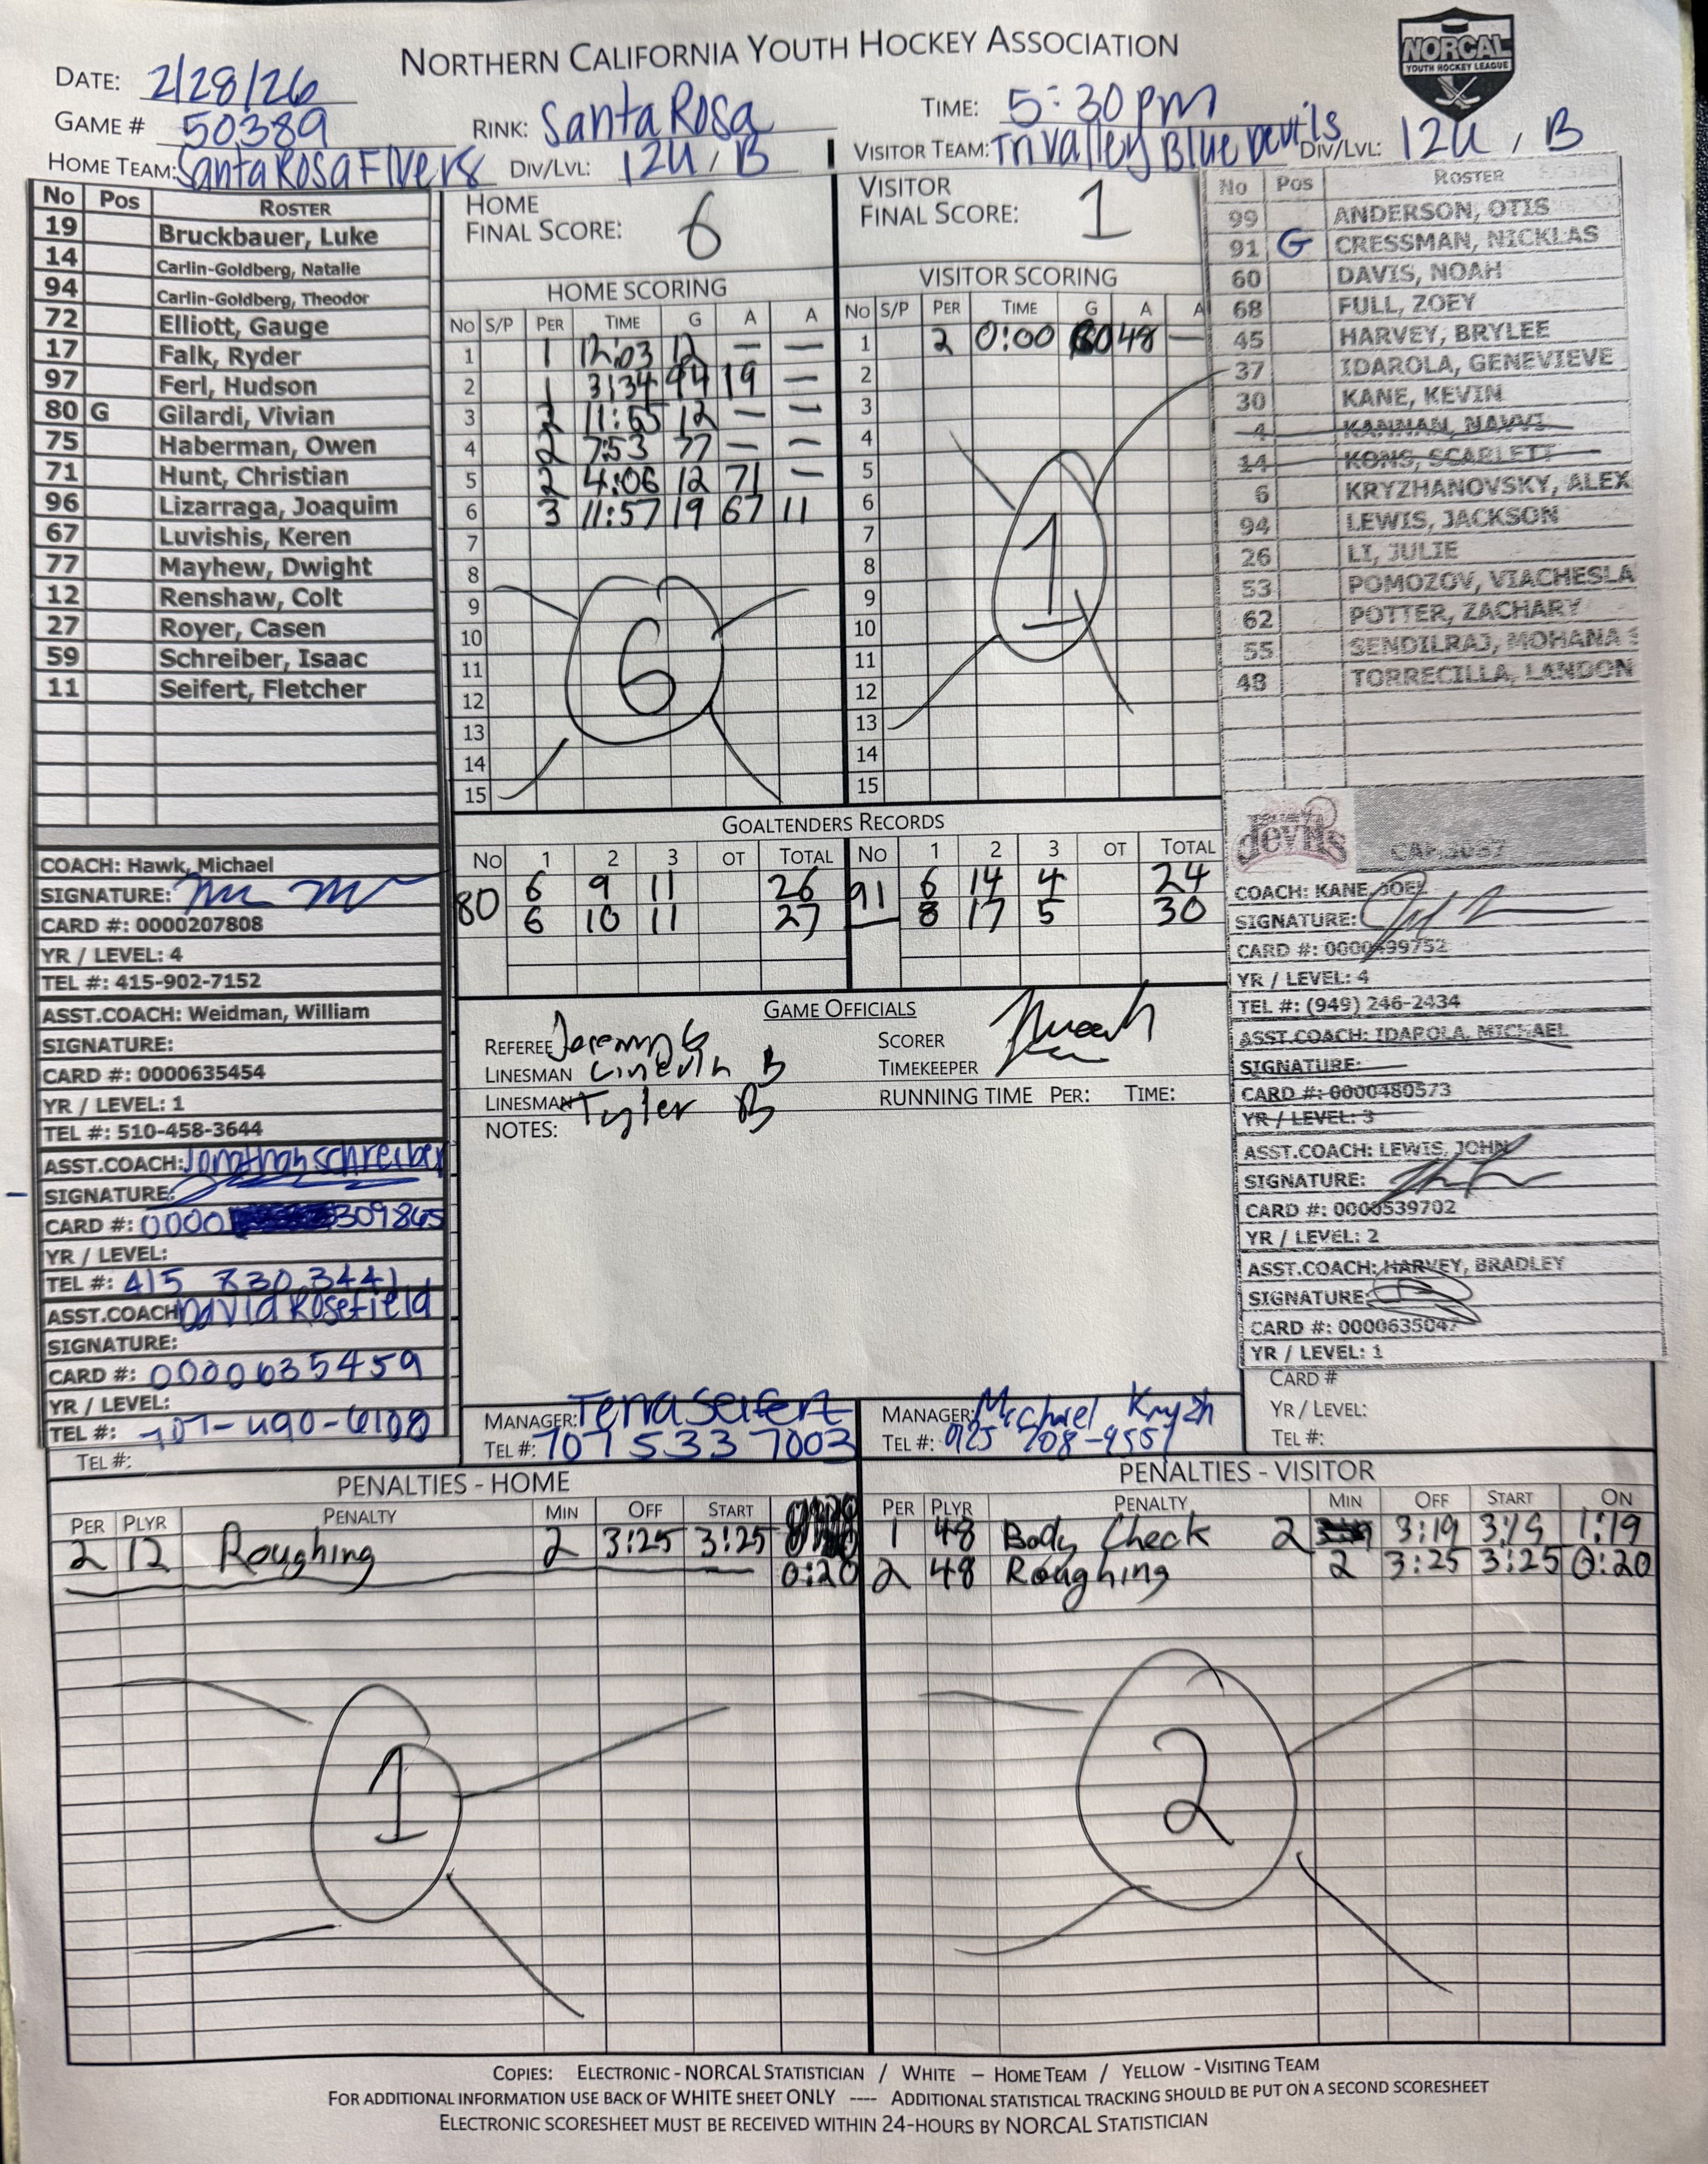 NORTHERN CALIFORNIA YOUTH HOCKEY ASSOCIATION
NORCAL
YOUTH HOCKEY LEAGUE
DATE: 2/28/26
GAME # 50389
RINK: Santa Rosa
TIME: 5:30pm
HOME TEAM: Santa Rosa Flyers
DIV/LVL: 12U, B
VISITOR TEAM: Tri Valley Blue Devils
DIV/LVL: 12U, B
No Pos ROSTER
19 Bruckbauer, Luke
14 Carlin-Goldberg, Natalie
94 Carlin-Goldberg, Theodor
72 Elliott, Gauge
17 Falk, Ryder
97 Ferl, Hudson
80 G Gilardi, Vivian
75 Haberman, Owen
71 Hunt, Christian
96 Lizarraga, Joaquim
67 Luvishis, Keren
77 Mayhew, Dwight
12 Renshaw, Colt
27 Royer, Casen
59 Schreiber, Isaac
11 Seifert, Fletcher
COACH: Hawk, Michael
SIGNATURE:
CARD #: 0000207808
YR / LEVEL: 4
TEL #: 415-902-7152
ASST.COACH: Weidman, William
SIGNATURE:
CARD #: 0000635454
YR / LEVEL: 1
TEL #: 510-458-3644
ASST.COACH: Jonathan Schreiber
SIGNATURE:
CARD #: 0000 309865
YR / LEVEL:
TEL #: 415 830 3441
ASST.COACH David Rosefield
SIGNATURE:
CARD #: 0000635459
YR / LEVEL:
TEL #: 707-490-6108
TEL #:
HOME
FINAL SCORE: 6
HOME SCORING
No S/P PER TIME G A A
1 1 12:03 12 — —
2 1 3:34 94 19 —
3 2 11:55 12 — —
4 2 7:53 77 — —
5 2 4:06 12 71 —
6 3 11:57 19 67 11
7
8
9
10
11
12
13
14
15
6
VISITOR
FINAL SCORE: 1
VISITOR SCORING
No S/P PER TIME G A A
1 2 0:00 60 48 —
2
3
4
5
6
7
8
9
10
11
12
13
14
15
1
No Pos ROSTER
99 ANDERSON, OTIS
91 G CRESSMAN, NICKLAS
60 DAVIS, NOAH
68 FULL, ZOEY
45 HARVEY, BRYLEE
37 IDAROLA, GENEVIEVE
30 KANE, KEVIN
4 KANNAN, NAVVI
14 KONS, SCARLETT
6 KRYZHANOVSKY, ALEX
94 LEWIS, JACKSON
26 LI, JULIE
53 POMOZOV, VIACHESLA
62 POTTER, ZACHARY
55 SENDILRAJ, MOHANA S
48 TORRECILLA, LANDON
devils
COACH: KANE, JOEL
SIGNATURE:
CARD #: 0000499752
YR / LEVEL: 4
TEL #: (949) 246-2434
ASST.COACH: IDAROLA, MICHAEL
SIGNATURE:
CARD #: 0000480573
YR / LEVEL: 3
ASST.COACH: LEWIS, JOHN
SIGNATURE:
CARD #: 0000539702
YR / LEVEL: 2
ASST.COACH: HARVEY, BRADLEY
SIGNATURE:
CARD #: 0000635047
YR / LEVEL: 1
CARD #
YR / LEVEL:
TEL #:
GOALTENDERS RECORDS
No 1 2 3 OT TOTAL No 1 2 3 OT TOTAL
80 6 9 11 26 91 6 14 4 24
6 10 11 27 8 17 5 30
GAME OFFICIALS
REFEREE Jeremy G
LINESMAN B
LINESMAN Tyler B
NOTES:
SCORER
TIMEKEEPER
RUNNING TIME PER: TIME:
MANAGER: Terra Seifert
TEL #: 707 533 7003
MANAGER: Michael Kryzh
TEL #: 925 708-9557
PENALTIES - HOME
PER PLYR PENALTY MIN OFF START
2 12 Roughing 2 3:25 3:25
0:20
1
PENALTIES - VISITOR
PER PLYR PENALTY MIN OFF START ON
1 48 Body Check 2 3:19 3:19 1:19
2 48 Roughing 2 3:25 3:25 0:20
2
COPIES: ELECTRONIC - NORCAL STATISTICIAN / WHITE – HOME TEAM / YELLOW - VISITING TEAM
FOR ADDITIONAL INFORMATION USE BACK OF WHITE SHEET ONLY ---- ADDITIONAL STATISTICAL TRACKING SHOULD BE PUT ON A SECOND SCORESHEET
ELECTRONIC SCORESHEET MUST BE RECEIVED WITHIN 24-HOURS BY NORCAL STATISTICIAN